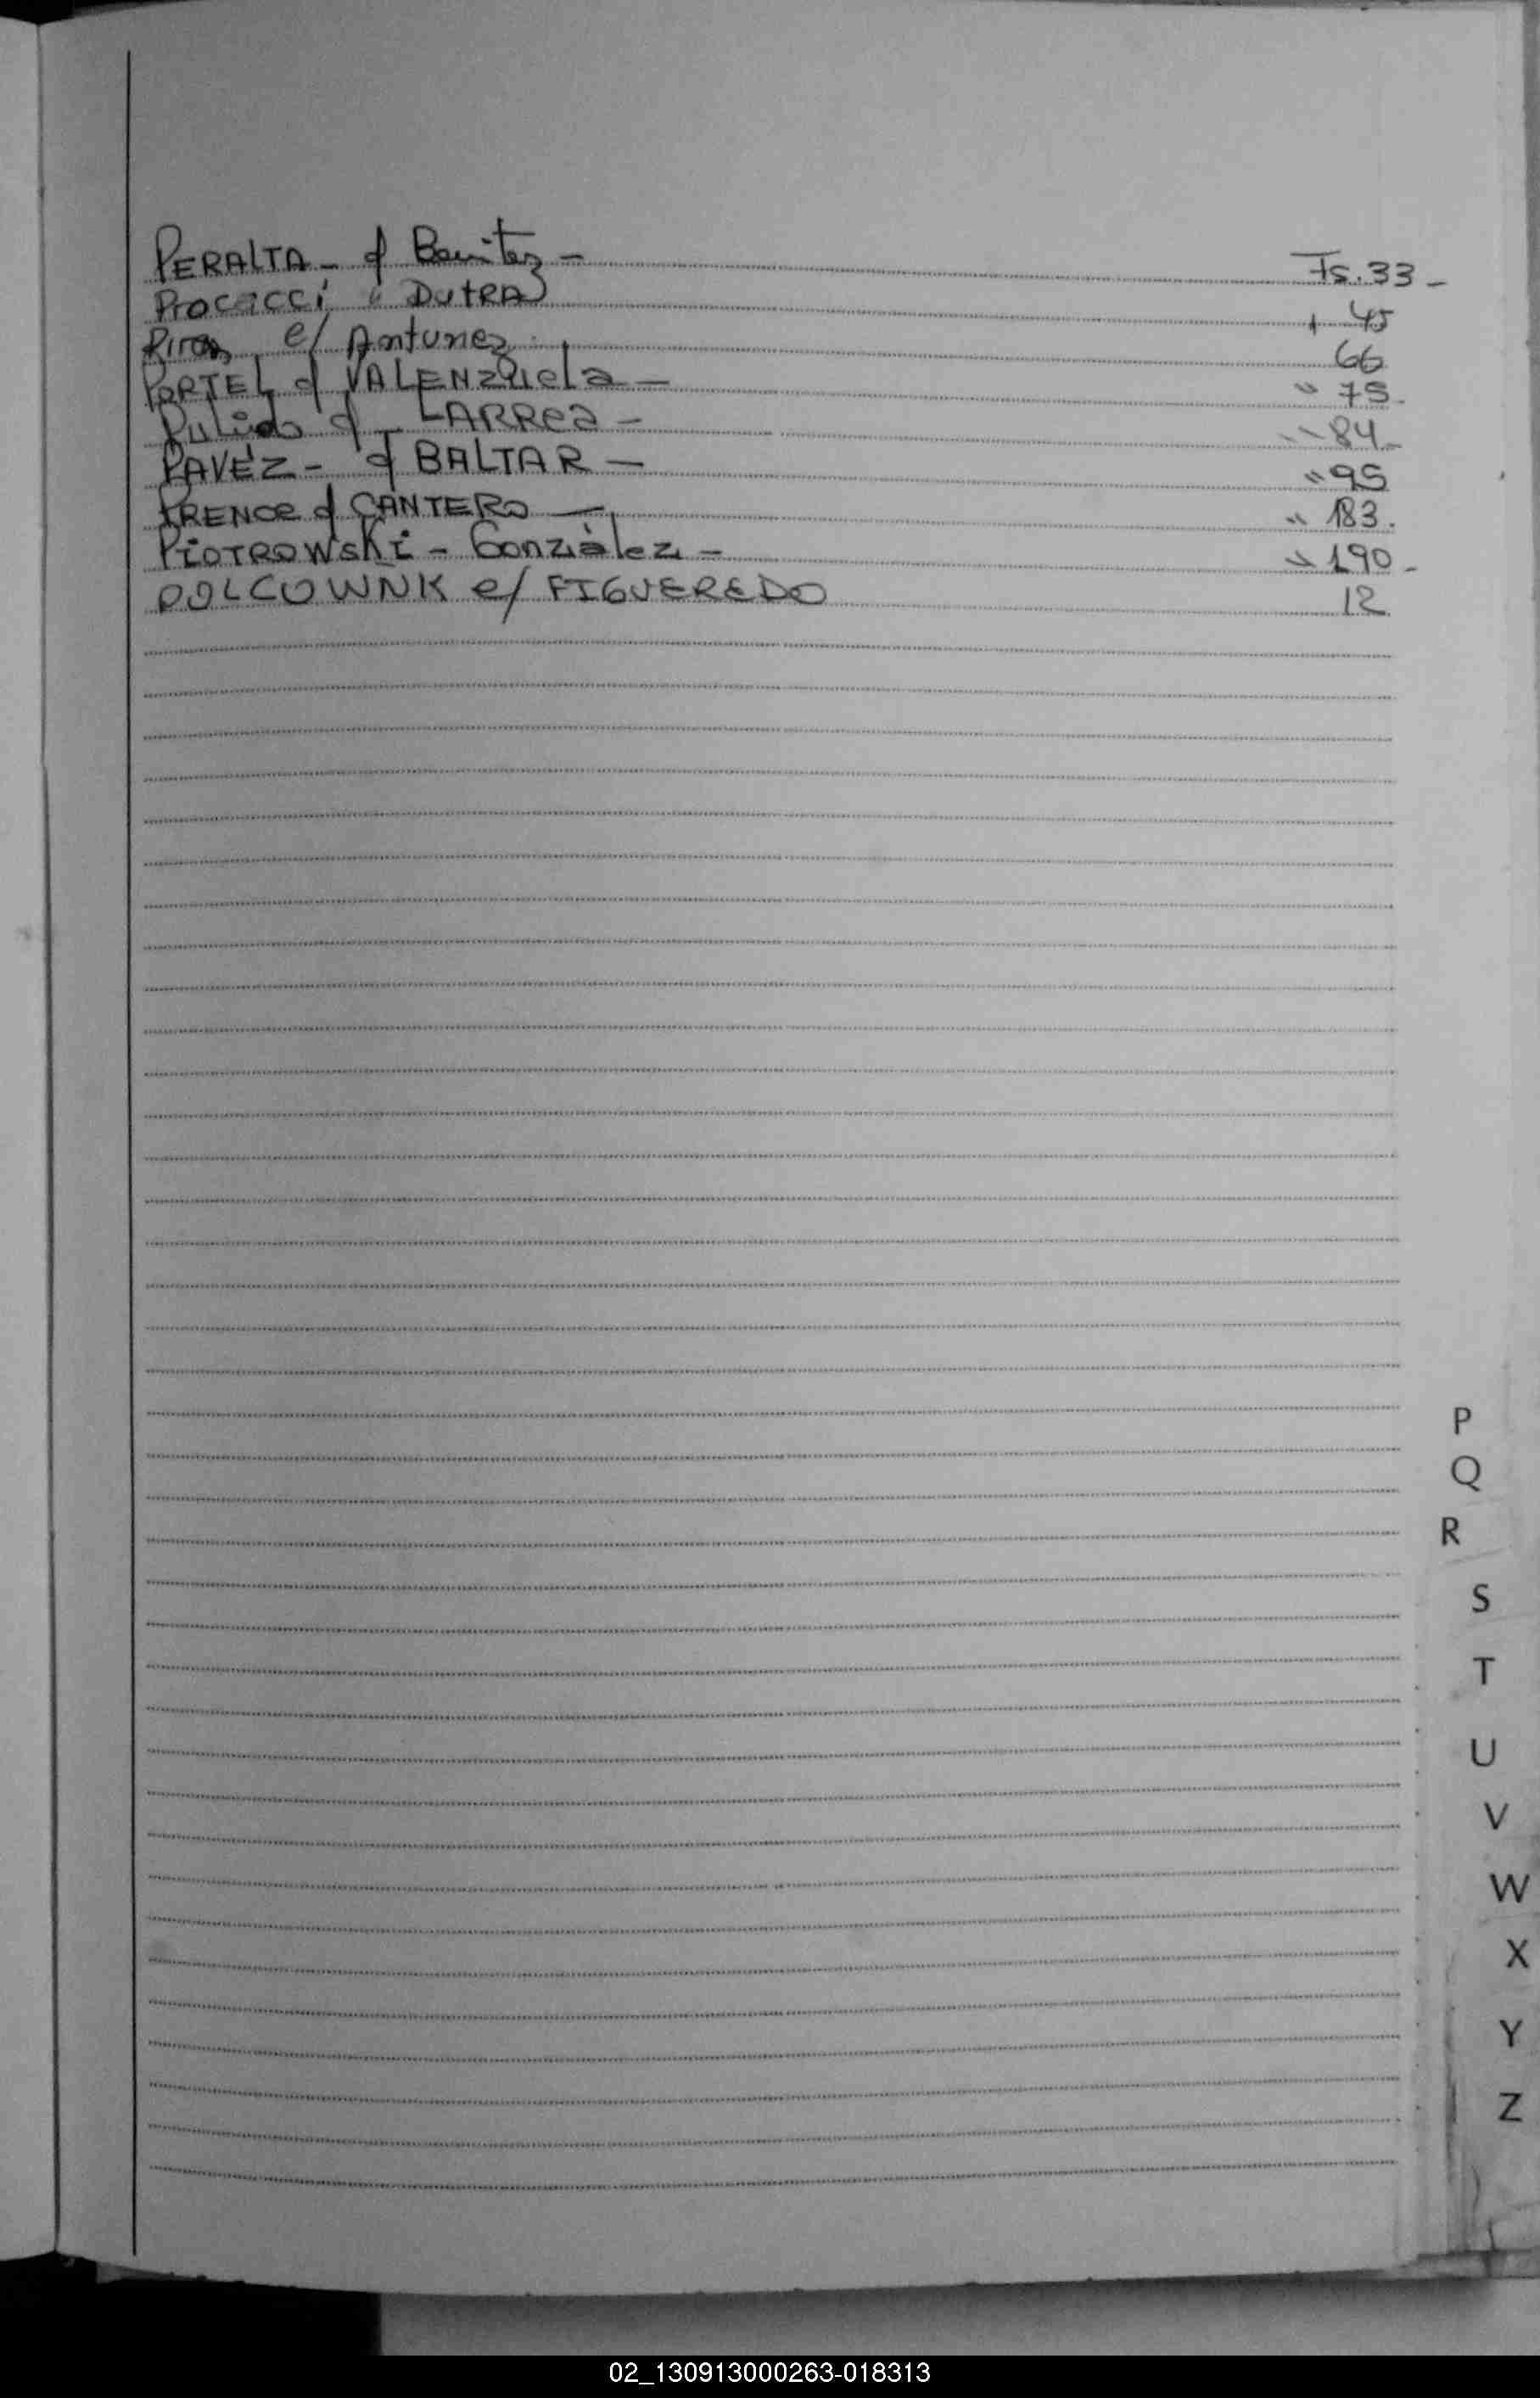 PERALTA - c/ Benitez - Fs. 33 -
Procacci " DUTRA " 45
e/ Antunez 66
PORTEL c/ VALENZUELA - " 75 -
Pulido c/ LARREA - " 84 -
PAVEZ - c/ BALTAR - " 95
PRENCE c/ CANTERO - " 183 .
PIOTROWSKI - González - " 190 -
POLCOWNK e/ FIGUEREDO 12
P
Q
R
S
T
U
V
W
X
Y
Z
02_130913000263-018313